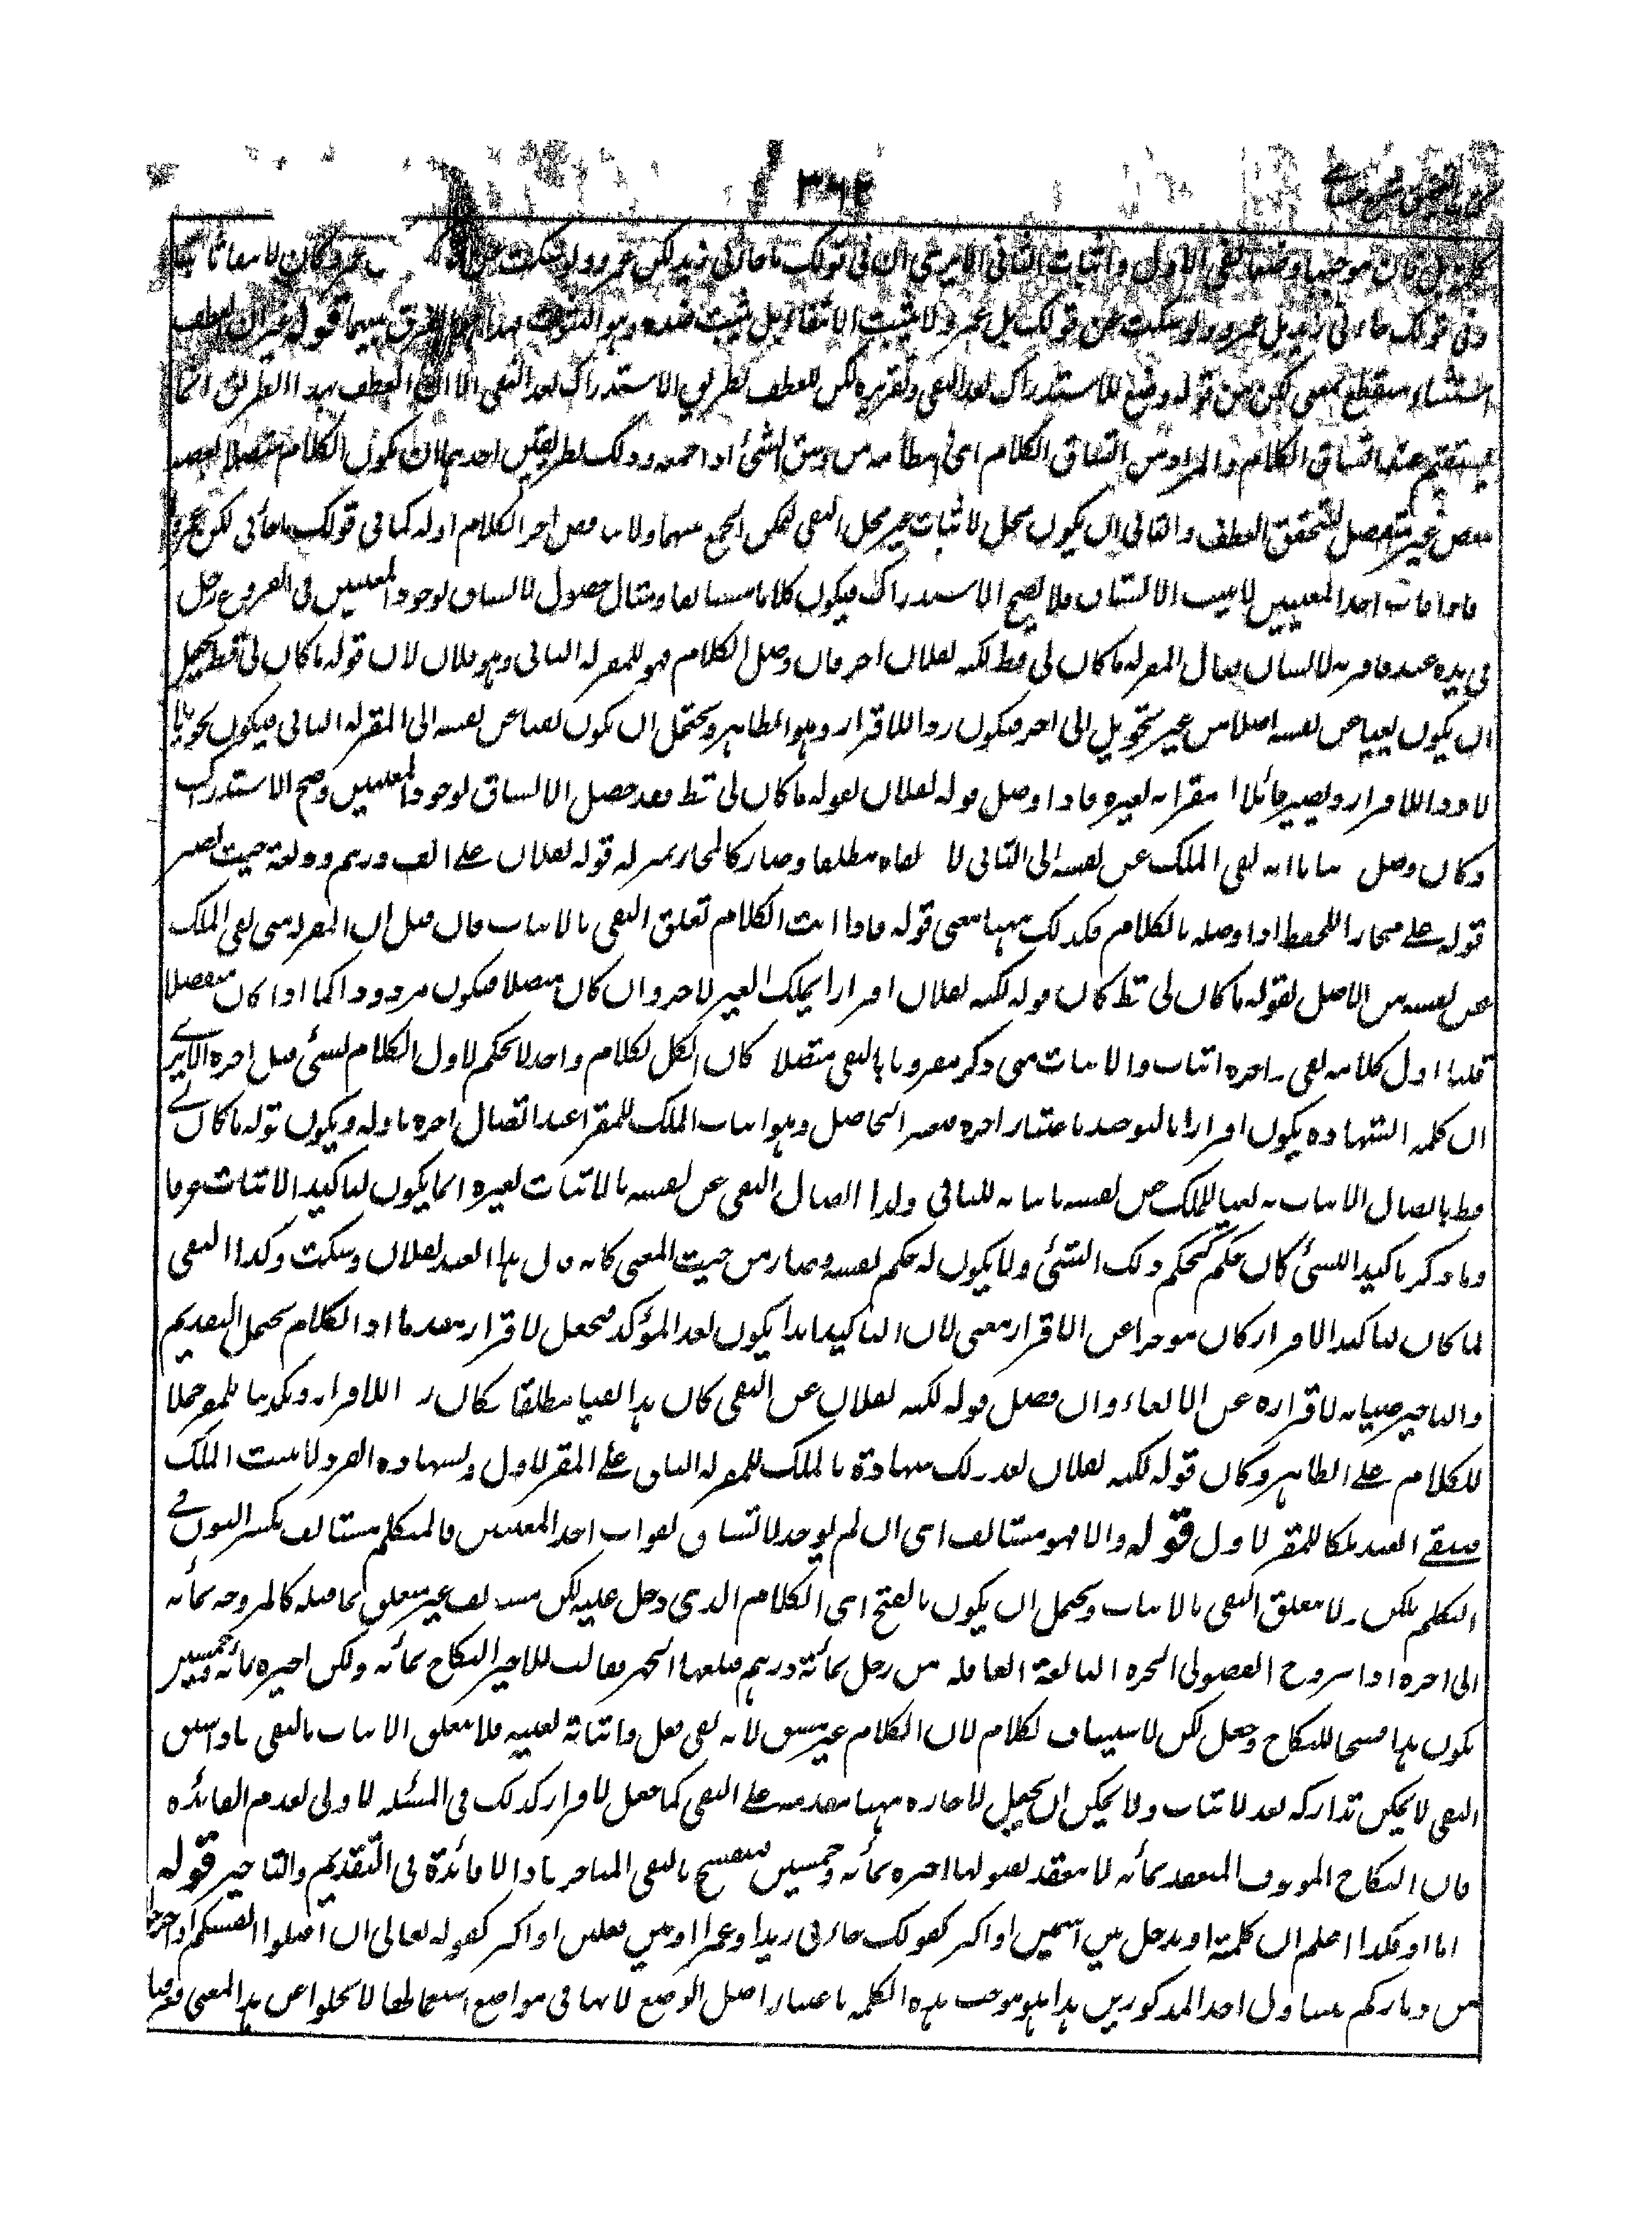 ٣٦٢
كلمة بل فان موجبها وضعا نفي الاول واثبات الثاني الا يرى ان في قولك ما جاءني زيد لكن عمرو ولو سكت عن قولك عمرو كان لا نتفائا
وفي قولك جاءني زيد بل عمرو ولو سكت عن قولك بل عمرو لا يثبت الانتفاء بل يثبت ضده وهو الثبوت هذا هو الفرق بينهما قوله غير ان العطف
استثناء منقطع بمعنى لكن من قوله وضع للاستدراك بعد النفي وتقريره لكن للعطف بطريق الاستدراك بعد النفي الا ان العطف بهذا الطريق انما
يستقيم عند اتساق الكلام والمراد من اتساق الكلام اي انتظامه من وسق الشئ اذا جمعه وذلك بطريقين احدهما ان يكون الكلام متصلا بعضه
ببعض غير منفصل ليتحقق العطف والثاني ان يكون محل الاثبات غير محل النفي ليمكن الجمع بينهما ولا يناقض اخر الكلام اوله كما في قولك ما جاءني لكن عمرو
فاذا فات احد المعنيين لا يثبت الاتساق فلا يصح الاستدراك فيكون كلاما مستانفا ومثال حصول الاتساق لوجود المعنيين في الفروع رجل
في يده عبد فاقر به لانسان فقال المقر له ما كان لي قط لكنه لفلان اخر فان وصل الكلام فهو للمقر له الثاني وهو فلان لان قوله ما كان لي قط يحتمل
ان يكون نفيا عن نفسه اصلا من غير تحويل الى اخر فيكون ردا للاقرار وهو الظاهر ويحتمل ان يكون نفيا عن نفسه الى المقر له الثاني فيكون تحويلا
لا ردا للاقرار ويصير قائلا مقرا به لغيره فاذا وصل قوله لفلان بقوله ما كان لي قط فقد حصل الاتساق لوجود المعنيين وصح الاستدراك
وكان وصل بيانا انه نفى الملك عن نفسه الى الثاني لا نفاه مطلقا وصار كالمجاز بمنزلة قوله لفلان على الف درهم وديعة حيث يصير
قوله على مجازا للحفظ اذا وصله بالكلام فكذلك ههنا معنى قوله فاذا اتسق الكلام تعلق النفي بالاثبات فان قيل ان المقر له متى نفى الملك
عن نفسه من الاصل بقوله ما كان لي قط كان قوله لكنه لفلان اقرارا بملك الغير لاخر وان كان متصلا فيكون مردودا كما اذا كان منفصلا
قلنا اول كلامه نفي واخره اثبات والاثبات متى ذكر مقرونا بالنفي متصلا كان الكل لكلام واحد لا يحكم لاول الكلام بشئ قبل اخره الا يرى
ان كلمة الشهادة يكون اقرارا بالتوحيد باعتبار اخره فيصير الحاصل وهو اثبات الملك للمقر عند اتصال اخره باوله ويكون قوله ما كان لي
قط باتصال الاثبات به نفيا للملك عن نفسه باثباته للثاني ولهذا اتصال النفي عن نفسه بالاثبات لغيره انما يكون لتاكيد الاثبات عرفا
وما ذكر تاكيدا للشئ كان حكمه كحكم ذلك الشئ ولا يكون له حكم نفسه وصار من حيث المعنى كانه قال هذا العبد لفلان وسكت وكذا النفي
لما كان لتاكيد الاقرار كان مؤخرا عن الاقرار معنى لان التاكيد ابدا يكون بعد المؤكد فيجعل الاقرار مقدما اذ الكلام يحتمل التقديم
والتاخير صيانة لاقراره عن الالغاء وان فصل قوله لكنه لفلان عن النفي كان هذا نفيا مطلقا فكان ردا للاقرار وتكذيبا للمقر حملا
للكلام على الظاهر وكان قوله لكنه لفلان بعد ذلك شهادة بالملك للمقر له الثاني على المقر الاول وبشهادة الفرد لا يثبت الملك
فيبقى العبد ملكا للمقر الاول قوله والا فهو مستانف اي ان لم يوجد الاتساق لفوات احد المعنيين فالمتكلم مستانف بكسر النون في
التكلم بلكن ولا يتعلق النفي بالاثبات ويحتمل ان يكون بالفتح اي الكلام الذي دخل عليه لكن مستانف غير متعلق بما قبله كالمزوجة بمائة
الى اخره اذا تزوج الفضولي الحرة البالغة العاقلة من رجل بمائة درهم فبلغها الخبر فقالت لا اجيز النكاح بمائة ولكن اجيزه بمائة وخمسين
يكون هذا فسخا للنكاح وجعل لكن لاستيناف الكلام لان الكلام غير متسق لانه نفي فعل واثباته بعينه فلا يتعلق الاثبات بالنفي فاذا سبق
النفي لا يمكن تداركه بعد الاثبات ولا يمكن ان يجعل الاجازة ههنا مقدمة على النفي كما جعل الاقرار كذلك في المسئلة الاولى لعدم الفائدة
فان النكاح الموقوف المنعقد بمائة لا ينعقد بقولها اجيزه بمائة وخمسين فينفسخ بالنفي المتاخر فاذا لا فائدة في التقديم والتاخير قوله
اما او فكذا اعلم ان كلمة او يدخل بين اسمين او اكثر كقولك جاءني زيد او عمرو او بين فعلين او اكثر كقوله تعالى ان اقتلوا انفسكم او اخرجوا
من دياركم يتناول احد المذكورين هذا هو موجب هذه الكلمة باعتبار اصل الوضع لانها في مواضع استعمالها لا يخلوا عن هذا المعنى فعرفنا